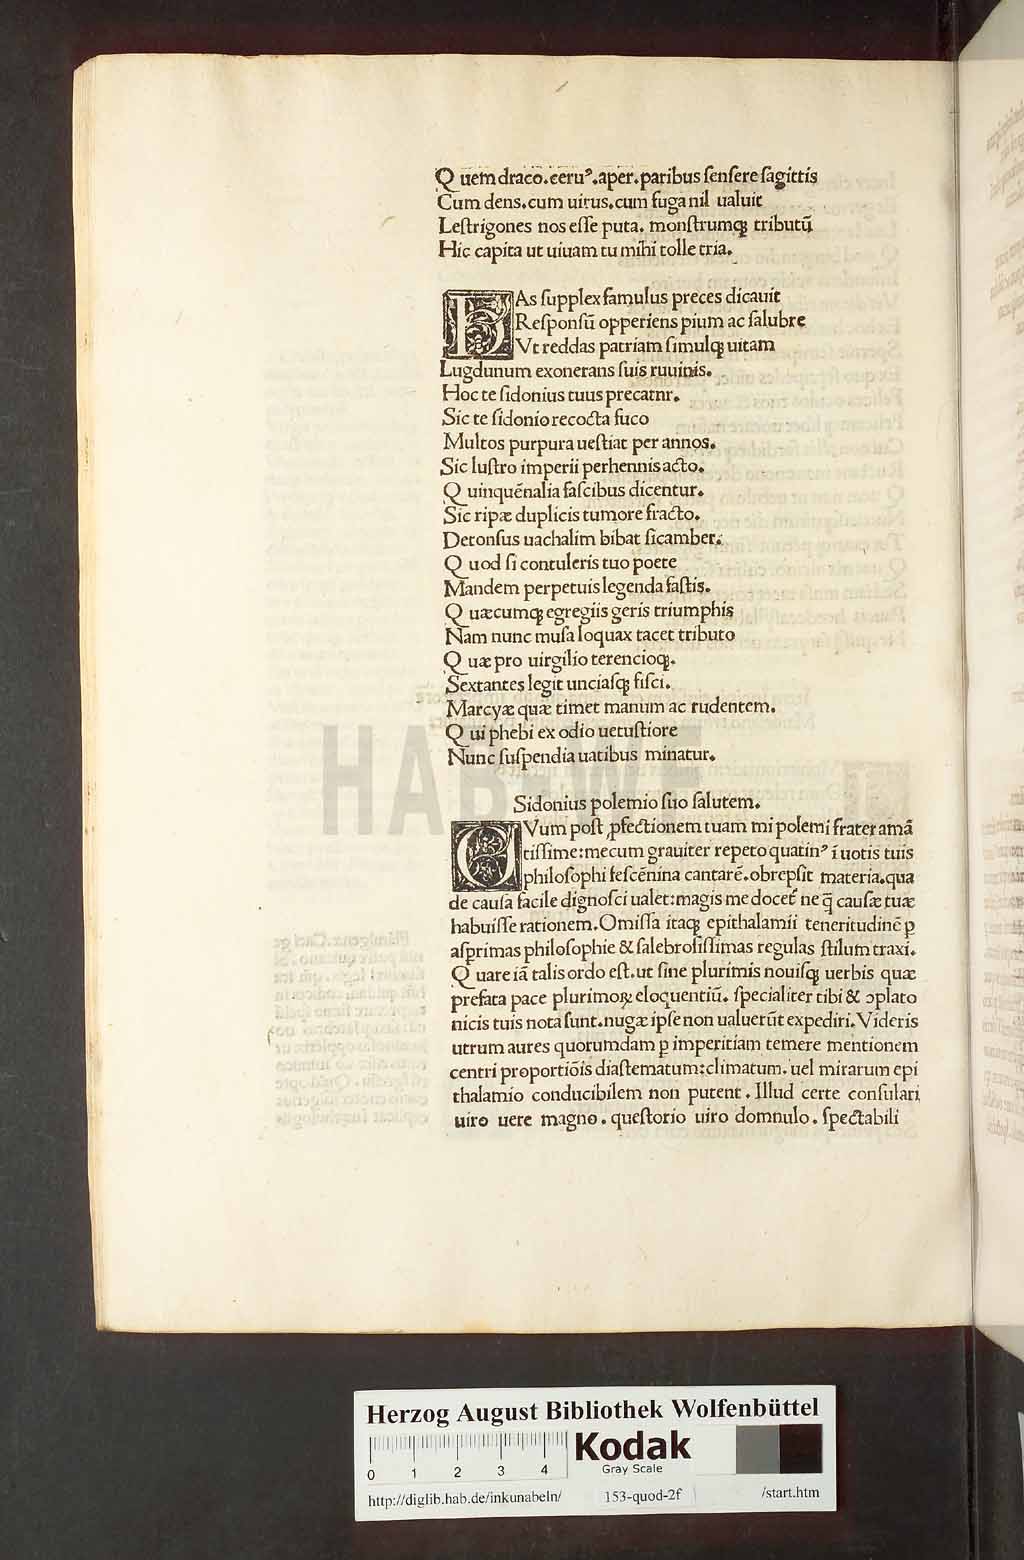 Quem draco.ceruꝰ.aper.paribus ſenſere ſagittis
Cum dens.cum uirus.cum fuga nil ualuit
Leſtrigones nos eſſe puta. monſtrumqꝫ tributū
Hic capita ut uiuam tu mihi tolle tria.
HAs ſupplex famulus preces dicauit
Reſponſū opperiens pium ac ſalubre
Vt reddas patriam ſimulqꝫ uitam
Lugdunum exonerans ſuis ruuinis.
Hoc te ſidonius tuus precatnr.
Sic te ſidonio recocta fuco
Multos purpura ueſtiat per annos.
Sic luſtro imperii perhennis acto.
Quinquēnalia faſcibus dicentur.
Sic ripæ duplicis tumore fracto.
Detonſus uachalim bibat ſicamber.
Quod ſi contuleris tuo poete
Mandem perpetuis legenda faſtis.
Quæcumqꝫ egregiis geris triumphis
Nam nunc muſa loquax tacet tributo
Quæ pro uirgilio terencioqꝫ.
Sextantes legit unciaſqꝫ fiſci.
Marcyæ quæ timet manum ac rudentem.
Qui phebi ex odio uetuſtiore
Nunc ſuſpendia uatibus minatur.
Sidonius polemio ſuo ſalutem.
CVum poſt ꝓfectionem tuam mi polemi frater amā
tiſſime:mecum grauiter repeto quatinꝰ ī uotis tuis
philoſophi feſcēnina cantarē.obrepſit materia.qua
de cauſa facile dignoſci ualet:magis me docet̄ ne q̄ cauſæ tuæ
habuiſſe rationem.Omiſſa itaqꝫ epithalamii teneritudinē ꝑ
aſprimas philoſophie & ſalebroſiſſimas regulas ſtilum traxi.
Quare iā talis ordo eſt.ut ſine plurimis nouiſqꝫ uerbis quæ
prefata pace plurimoꝝ eloquentiū. ſpecialiter tibi & ꝯplato
nicis tuis nota ſunt.nugæ ipſe non ualuerūt expediri.Videris
utrum aures quorumdam ꝑ imperitiam temere mentionem
centri proportiōis diaſtematum:climatum.uel mirarum epi
thalamio conducibilem non putent. Illud certe conſulari
uiro uere magno. queſtorio uiro domnulo. ſpectabili
HAB-WF
Herzog August Bibliothek Wolfenbüttel
Kodak
Gray Scale
0 1 2 3 4
http://diglib.hab.de/inkunabeln/ 153-quod-2f /start.htm